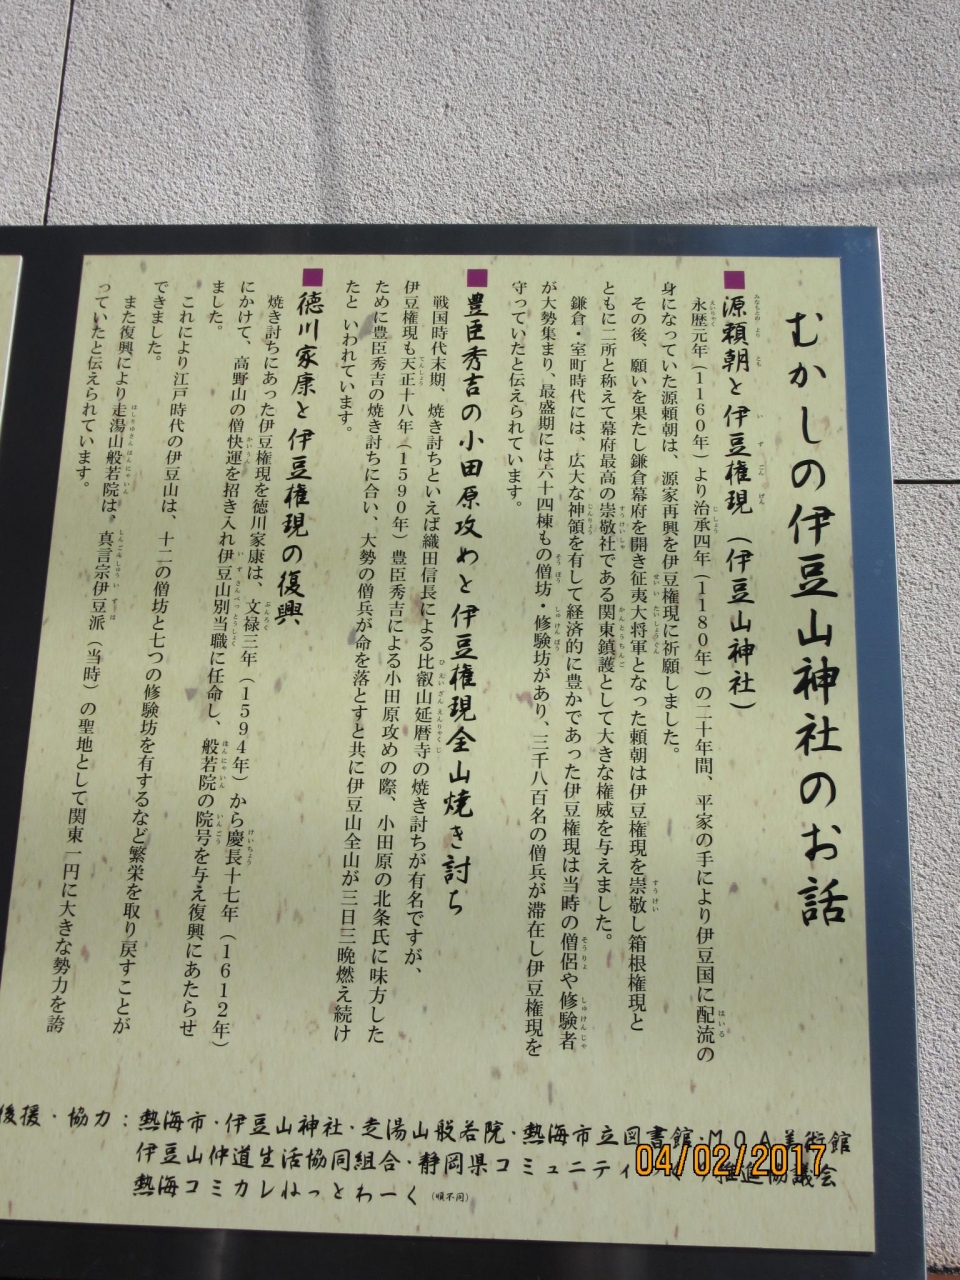 むかしの伊豆山神社のお話
■源頼朝と伊豆権現（伊豆山神社）
永暦元年（1160年）より治承四年（1180年）の二十年間、平家の手により伊豆国に配流の
身になっていた源頼朝は、源家再興を伊豆権現に祈願しました。
その後、願いを果たし鎌倉幕府を開き征夷大将軍となった頼朝は伊豆権現を崇敬し箱根権現と
ともに二所と称えて幕府最高の崇敬社である関東鎮護として大きな権威を与えました。
鎌倉・室町時代には、広大な神領を有して経済的に豊かであった伊豆権現は当時の僧侶や修験者
が大勢集まり、最盛期には六十四棟もの僧坊・修験坊があり、三千八百名の僧兵が滞在し伊豆権現を
守っていたと伝えられています。
■豊臣秀吉の小田原攻めと伊豆権現全山焼き討ち
戦国時代末期、焼き討ちといえば織田信長による比叡山延暦寺の焼き討ちが有名ですが、
伊豆権現も天正十八年（1590年）豊臣秀吉による小田原攻めの際、小田原の北条氏に味方した
ために豊臣秀吉の焼き討ちに合い、大勢の僧兵が命を落とすと共に伊豆山全山が三日三晩燃え続け
たと いわれています。
■徳川家康と伊豆権現の復興
焼き討ちにあった伊豆権現を徳川家康は、文禄三年（1594年）から慶長十七年（1612年）
にかけて、高野山の僧快運を招き入れ伊豆山別当職に任命し、般若院の院号を与え復興にあたらせ
ました。
これにより江戸時代の伊豆山は、十二の僧坊と七つの修験坊を有するなど繁栄を取り戻すことが
できました。
また復興により走湯山般若院は、真言宗伊豆派（当時）の聖地として関東一円に大きな勢力を誇
っていたと伝えられています。
後援・協力：熱海市・伊豆山神社・走湯山般若院・熱海市立図書館・MOA美術館
伊豆山仲道生活協同組合・静岡県コミュニティ 推進協議会
熱海コミカレねっとわーく（順不同）
04/02/2017